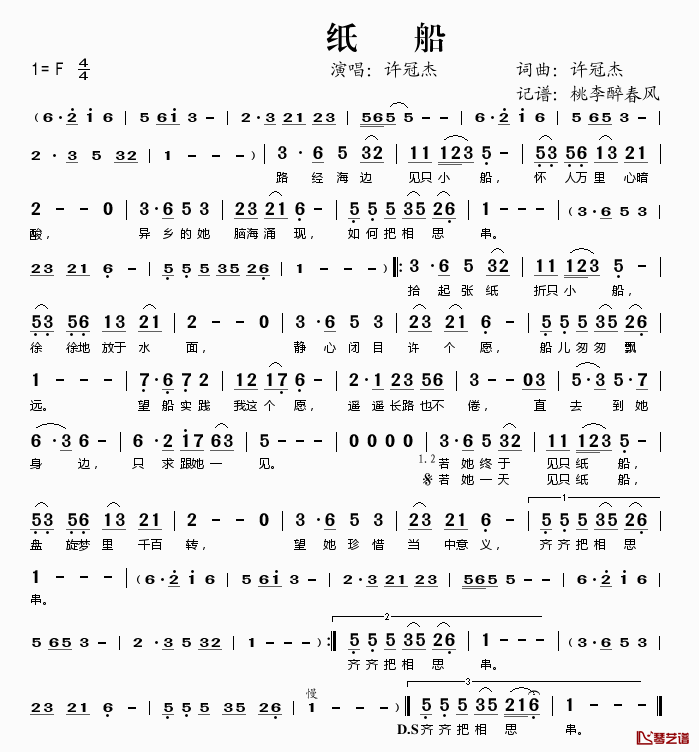 纸 船
1= F 4/4 演唱：许冠杰 词曲：许冠杰
记谱：桃李醉春风
( 6· 2 i 6 | 5 6i 3 - | 2· 3 21 23 | 565 5 - - | 6· 2 i 6 | 5 6i 3 - |
2 · 3 5 32 | 1 - - - ) | 3 · 6 5 32 | 11 123 5 - | 53 56 13 21 |
路 经 海 边 见只 小 船， 怀 人万 里 心暗
2 - - 0 | 3·6 5 3 | 23 21 6 - | 5 5 5 35 26 | 1 - - - | (3·6 5 3 |
酸， 异 乡 的 她 脑海 涌 现， 如 何 把 相 思 串。
23 21 6 - | 5 5 5 35 26 | 1 - - - ) ‖: 3 · 6 5 32 | 11 123 5 - |
拾 起 张 纸 折只 小 船，
53 56 13 21 | 2 - - 0 | 3 · 6 5 3 | 23 21 6 - | 5 5 5 35 26 |
徐 徐地 放于 水 面， 静 心 闭 目 许 个 愿， 船 儿 匆 匆 飘
1 - - - | 7·6 7 2 | 21 17 6 - | 2·1 23 56 | 3 - - 03 | 5·3 5·7 |
远。 望 船 实 践 我这 个 愿， 遥 遥 长路 也不 倦， 直 去 到 她
6 ·3 6 - | 6 ·2 i7 63 | 5 - - - | 0 0 0 0 | 3·6 5 32 | 11 123 5 - |
身 边， 只 求 跟她 一 见。 1. 2 若 她 终 于 见只 纸 船，
𝄋若 她 一 天 见只 纸 船，
53 56 13 21 | 2 - - 0 | 3 · 6 5 3 | 23 21 6 - | 1 5 5 5 35 26 |
盘 旋梦 里 千百 转， 望 她 珍 惜 当 中意 义， 齐 齐 把 相 思
1 - - - | (6·2 i 6 | 5 6i 3 - | 2·3 21 23 | 565 5 - - | 6·2 i 6 |
串。
5 65 3 - | 2 ·3 5 32 | 1 - - - ) :‖ 2 5 5 5 35 26 | 1 - - - | (3·6 5 3 |
齐 齐 把 相 思 串。
23 21 6 - | 5 5 5 35 26 | 慢 1 - - - ) ‖ 3 5 5 5 35 216 | 1 - - - ‖
D.S 齐 齐 把 相 思 串。
琴艺谱